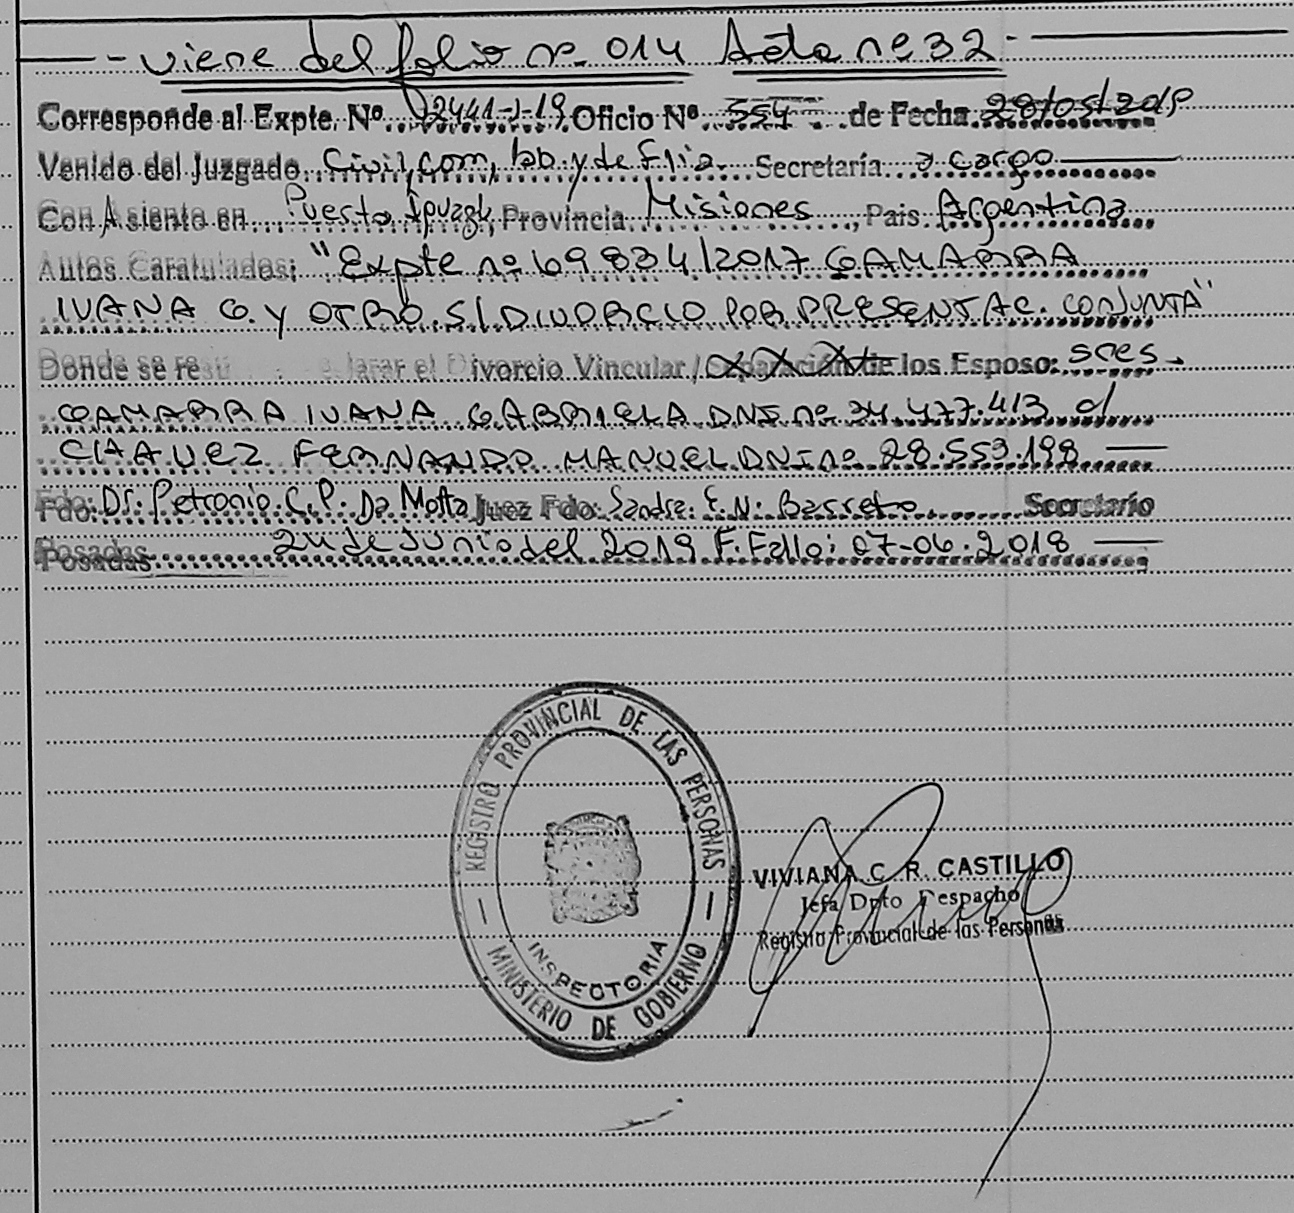 - viene del folio nº 014 Acta nº 32 -
Corresponde al Expte. Nº 02441-J-19 Oficio Nº 554 de Fecha 28/05/2019
Venido del Juzgado Civil, Com, lab. y de Flia. Secretaría a cargo
Con Asiento en Puerto Iguazú, Provincia Misiones, Pais Argentina
Autos Caratulados: "Expte nº 69834/2017 GAMARRA
IVANA G. Y OTRO S/DIVORCIO POR PRESENTAC. CONJUNTA"
Donde se re larar el Divorcio Vincular/Separación de los Esposo: sres.
GAMARRA IVANA GABRIELA DNI nº 34.477.413 c/
CHAVEZ FERNANDO MANUEL DNI nº 28.553.198
Fdo: Dr. Petronio C.P. Da Motta Juez Fdo: Sandra E.N. Barreto Secretario
Posadas 24 de Junio del 2019 F. Fallo: 07-06-2018
REGISTRO PROVINCIAL DE LAS PERSONAS
INSPECTORIA
MINISTERIO DE GOBIERNO
VIVIANA C. R. CASTILLO
Jefa Dpto Despacho
Registro Provincial de las Personas